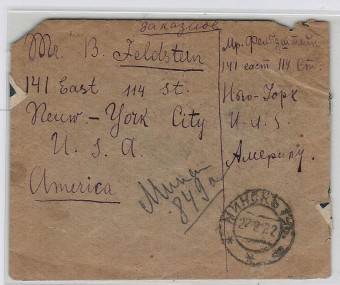 заказное
Mr. B. Feldstein
141 East 114 st.
Neuw.-York City
U. S. A.
America
Мр. Фельдштейн
141 еаст 114 Ст.
Нью-Йорк
U. S.
Америку.
Минск
849а
МИНСКЪ